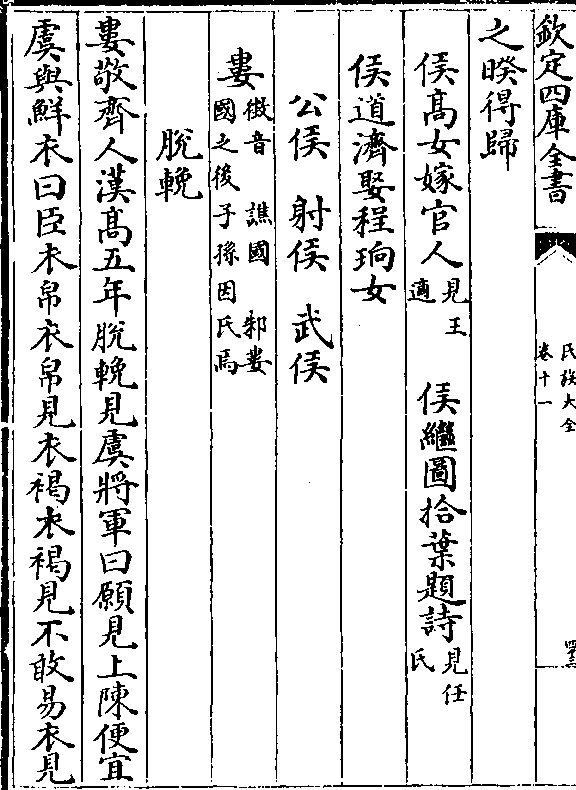 欽定四庫全書
氏族大全
卷十一
之暌得歸
侯髙女嫁官人見王適　侯繼圖拾葉題詩見任氏
侯道濟娶程珦女
公侯　射侯　武侯
婁徴音　譙國　邾婁國之後子孫因氏焉
脫輓
婁敬齊人漢髙五年脫輓見虞將軍曰願見上陳便宜
虞與鮮衣曰臣衣帛衣帛見衣褐衣褐見不敢易衣見